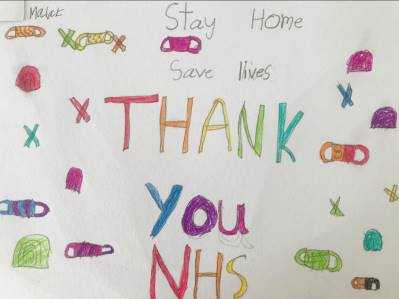 Stay Home
Save lives
THANK
YOU
NHS